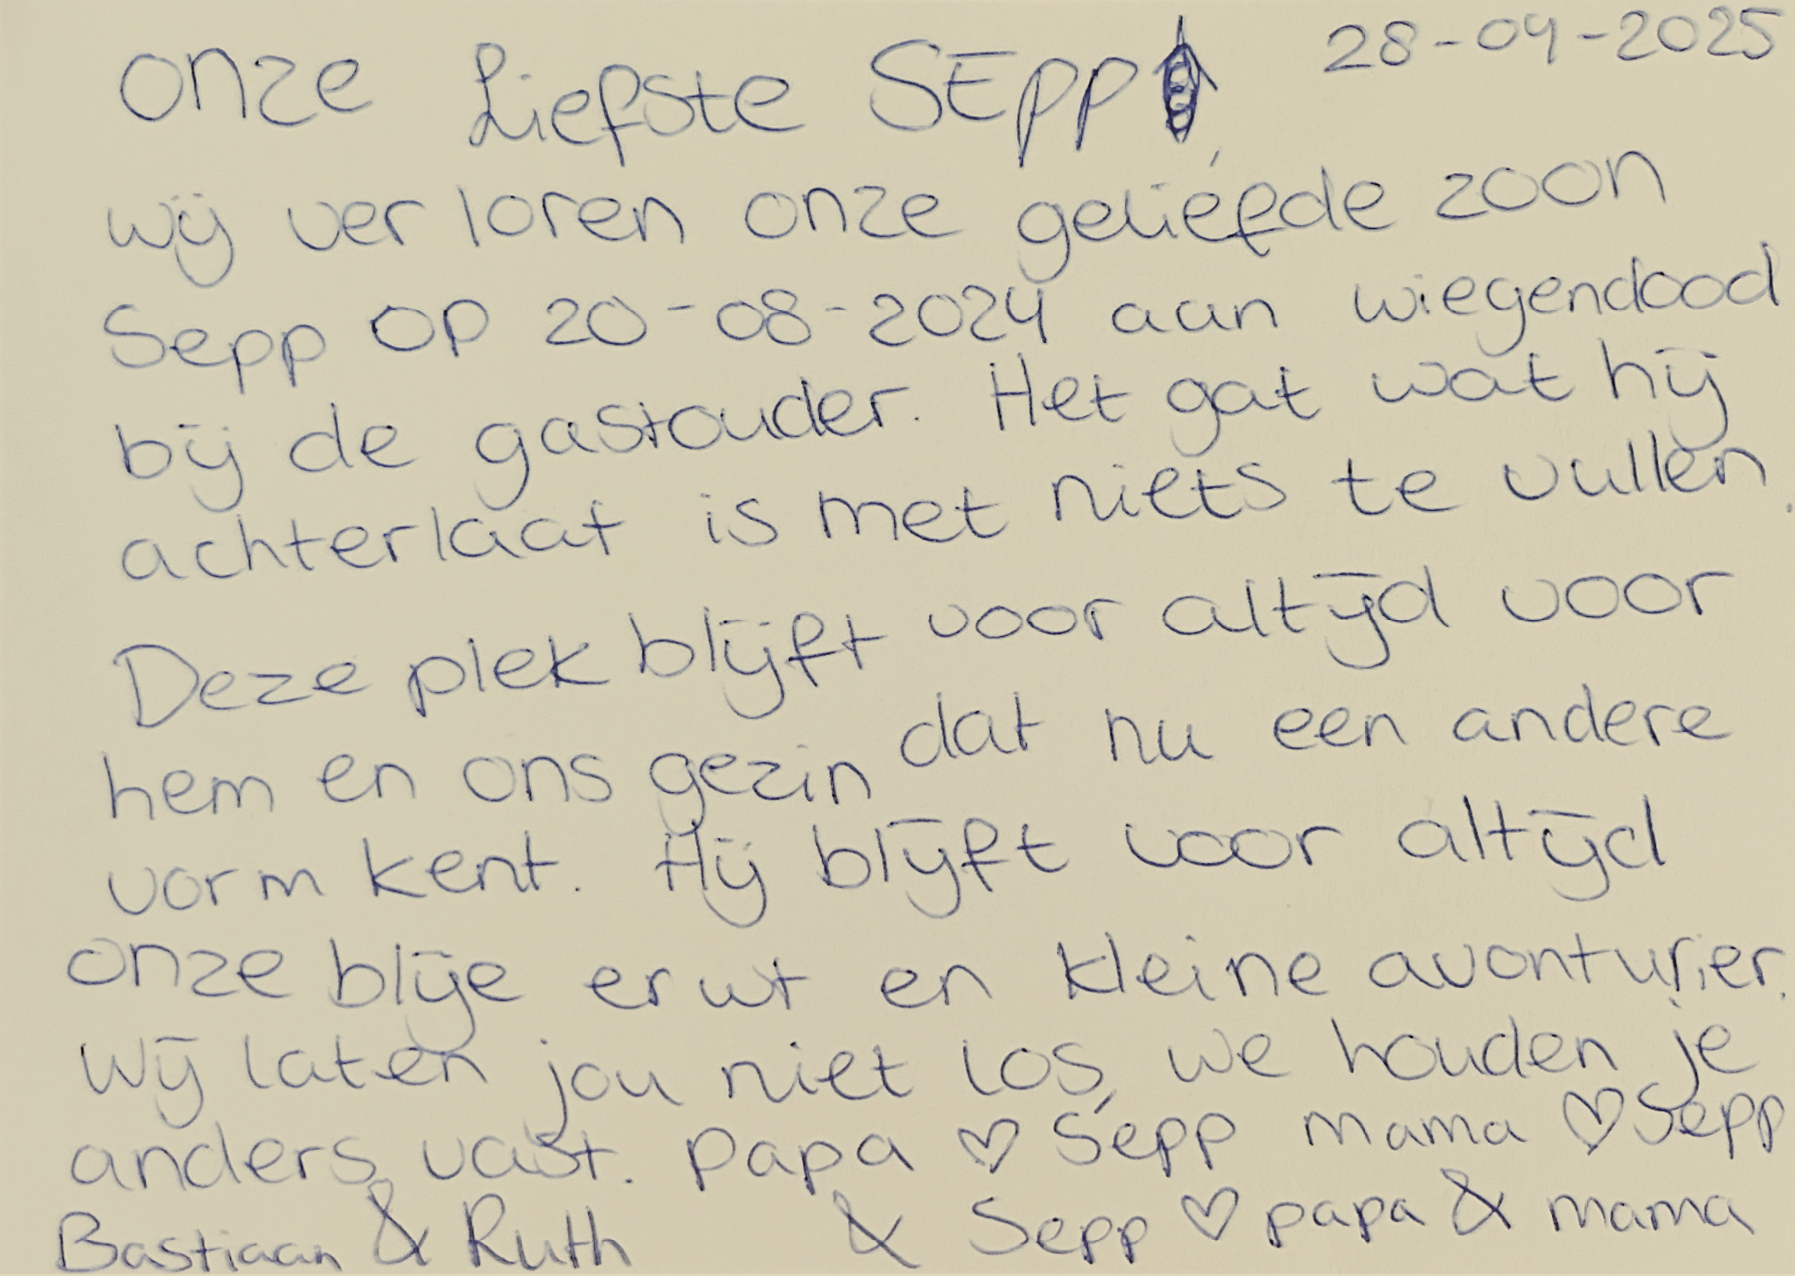 onze Liefste SEpp 28-04-2025
wij ver loren onze geliefde zoon
Sepp op 20-08-2024 aan wiegendood
bij de gastouder. Het gat wat hij
achterlaat is met niets te vullen.
Deze plek blijft voor altijd voor
hem en ons gezin dat nu een andere
vorm kent. Hij blijft voor altijd
onze blije erwt en kleine avonturier.
Wij laten jou niet los, we houden je
anders vast. papa ♡ Sepp mama ♡ Sepp
Bastiaan & Ruth & Sepp ♡ papa & mama